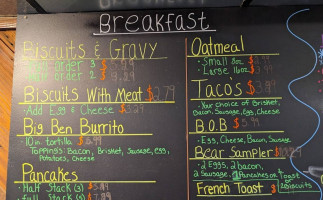 Breakfast
Biscuits & Gravy
order
order 2
Biscuits With Meat $2.79
- Add Egg & Cheese
Big Ben Burrito
- 10 in. tortilla
Toppings- Bacon, Brisket, Sausage, egg,
Potatoes, Cheese
Pancakes
- Half Stack (3)
- full Stack
Oatmeal
- Small 8oz
- Large 16oz
Taco's
- Your choice of Brisket,
Bacon, Sausage, Egg, Cheese
B.O.B
- Egg, Cheese, Bacon, Sausage
Bear Sampler
- 2 Eggs, 2 bacon,
2 Sausage, 2 Pancakes or Toast
or
2 Biscuits
French Toast